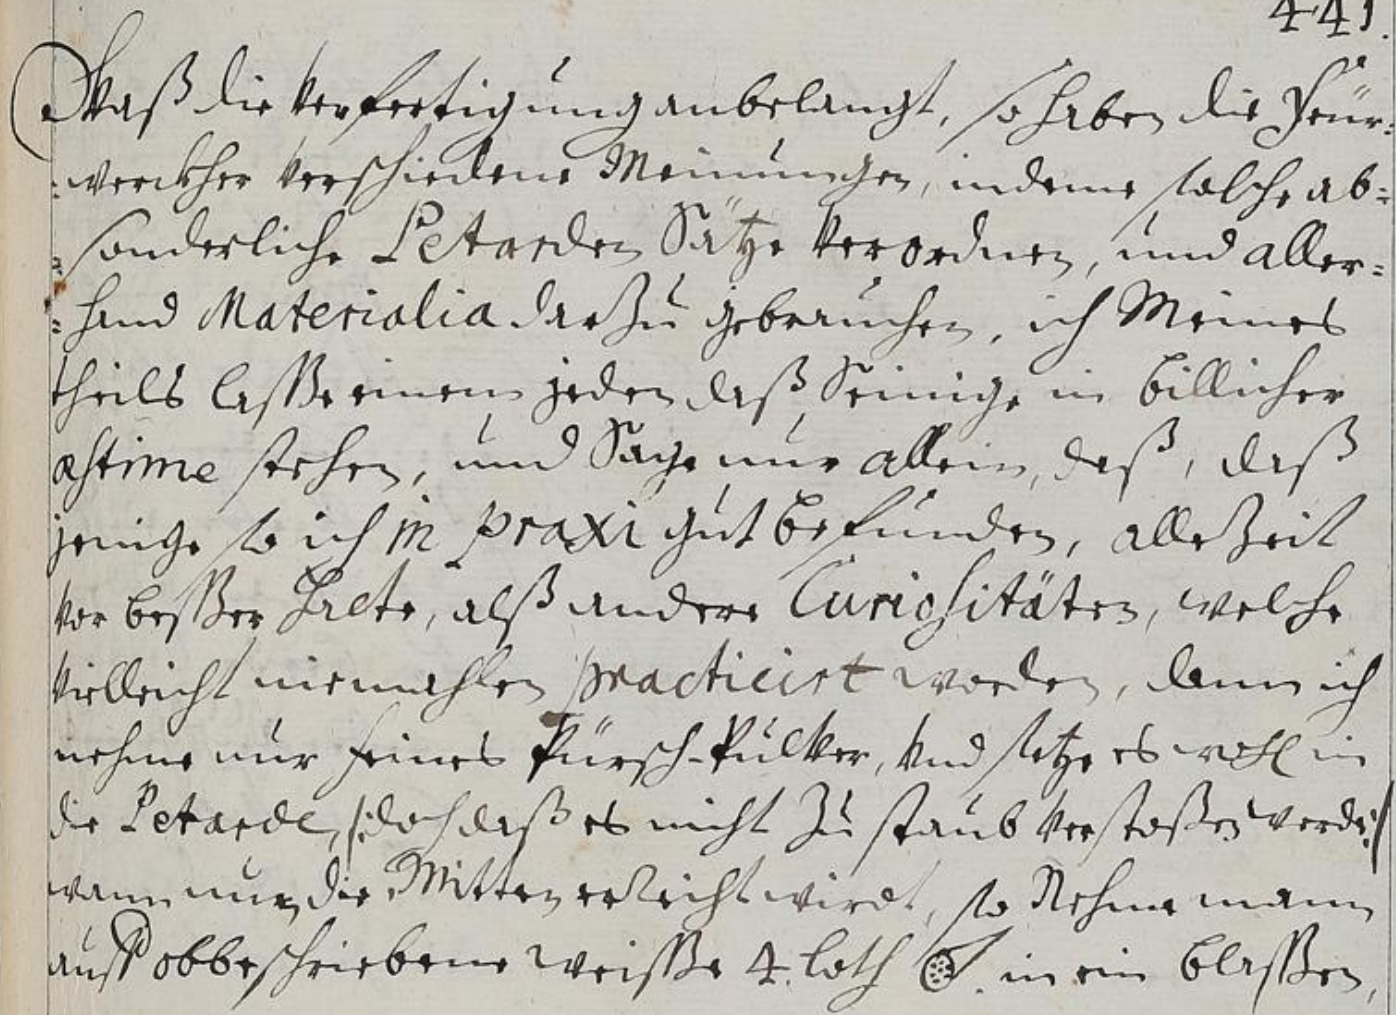 441.
Waß die Verfertigung anbelangt, so haben die Feür-
-werckher verschiedene Meinungen, indeme solche ab-
-sonderliche Petarden Sätze verordnen, und aller-
-hand Materialia darzu gebrauchen, ich Meines
theils lasse einem jeden daß Seinige in billicher
æstime stehen, und Sage nur allein, daß, daß
jenige so ich in praxi gut befunden, allezeit
vor besser halte, alß andere Curiositäten, welche
vielleicht niemahlen practicirt worden, dann ich
nehme nur feines Pürsch-Pulver, vnd setze es wohl in
die Petarde, /:doch daß es nicht zu staub verstoßen werde:/
wann nun die Mitten erreicht wirdt, so Nehme mann
auff obbeschriebene weisse 4. loth in ein blassen,